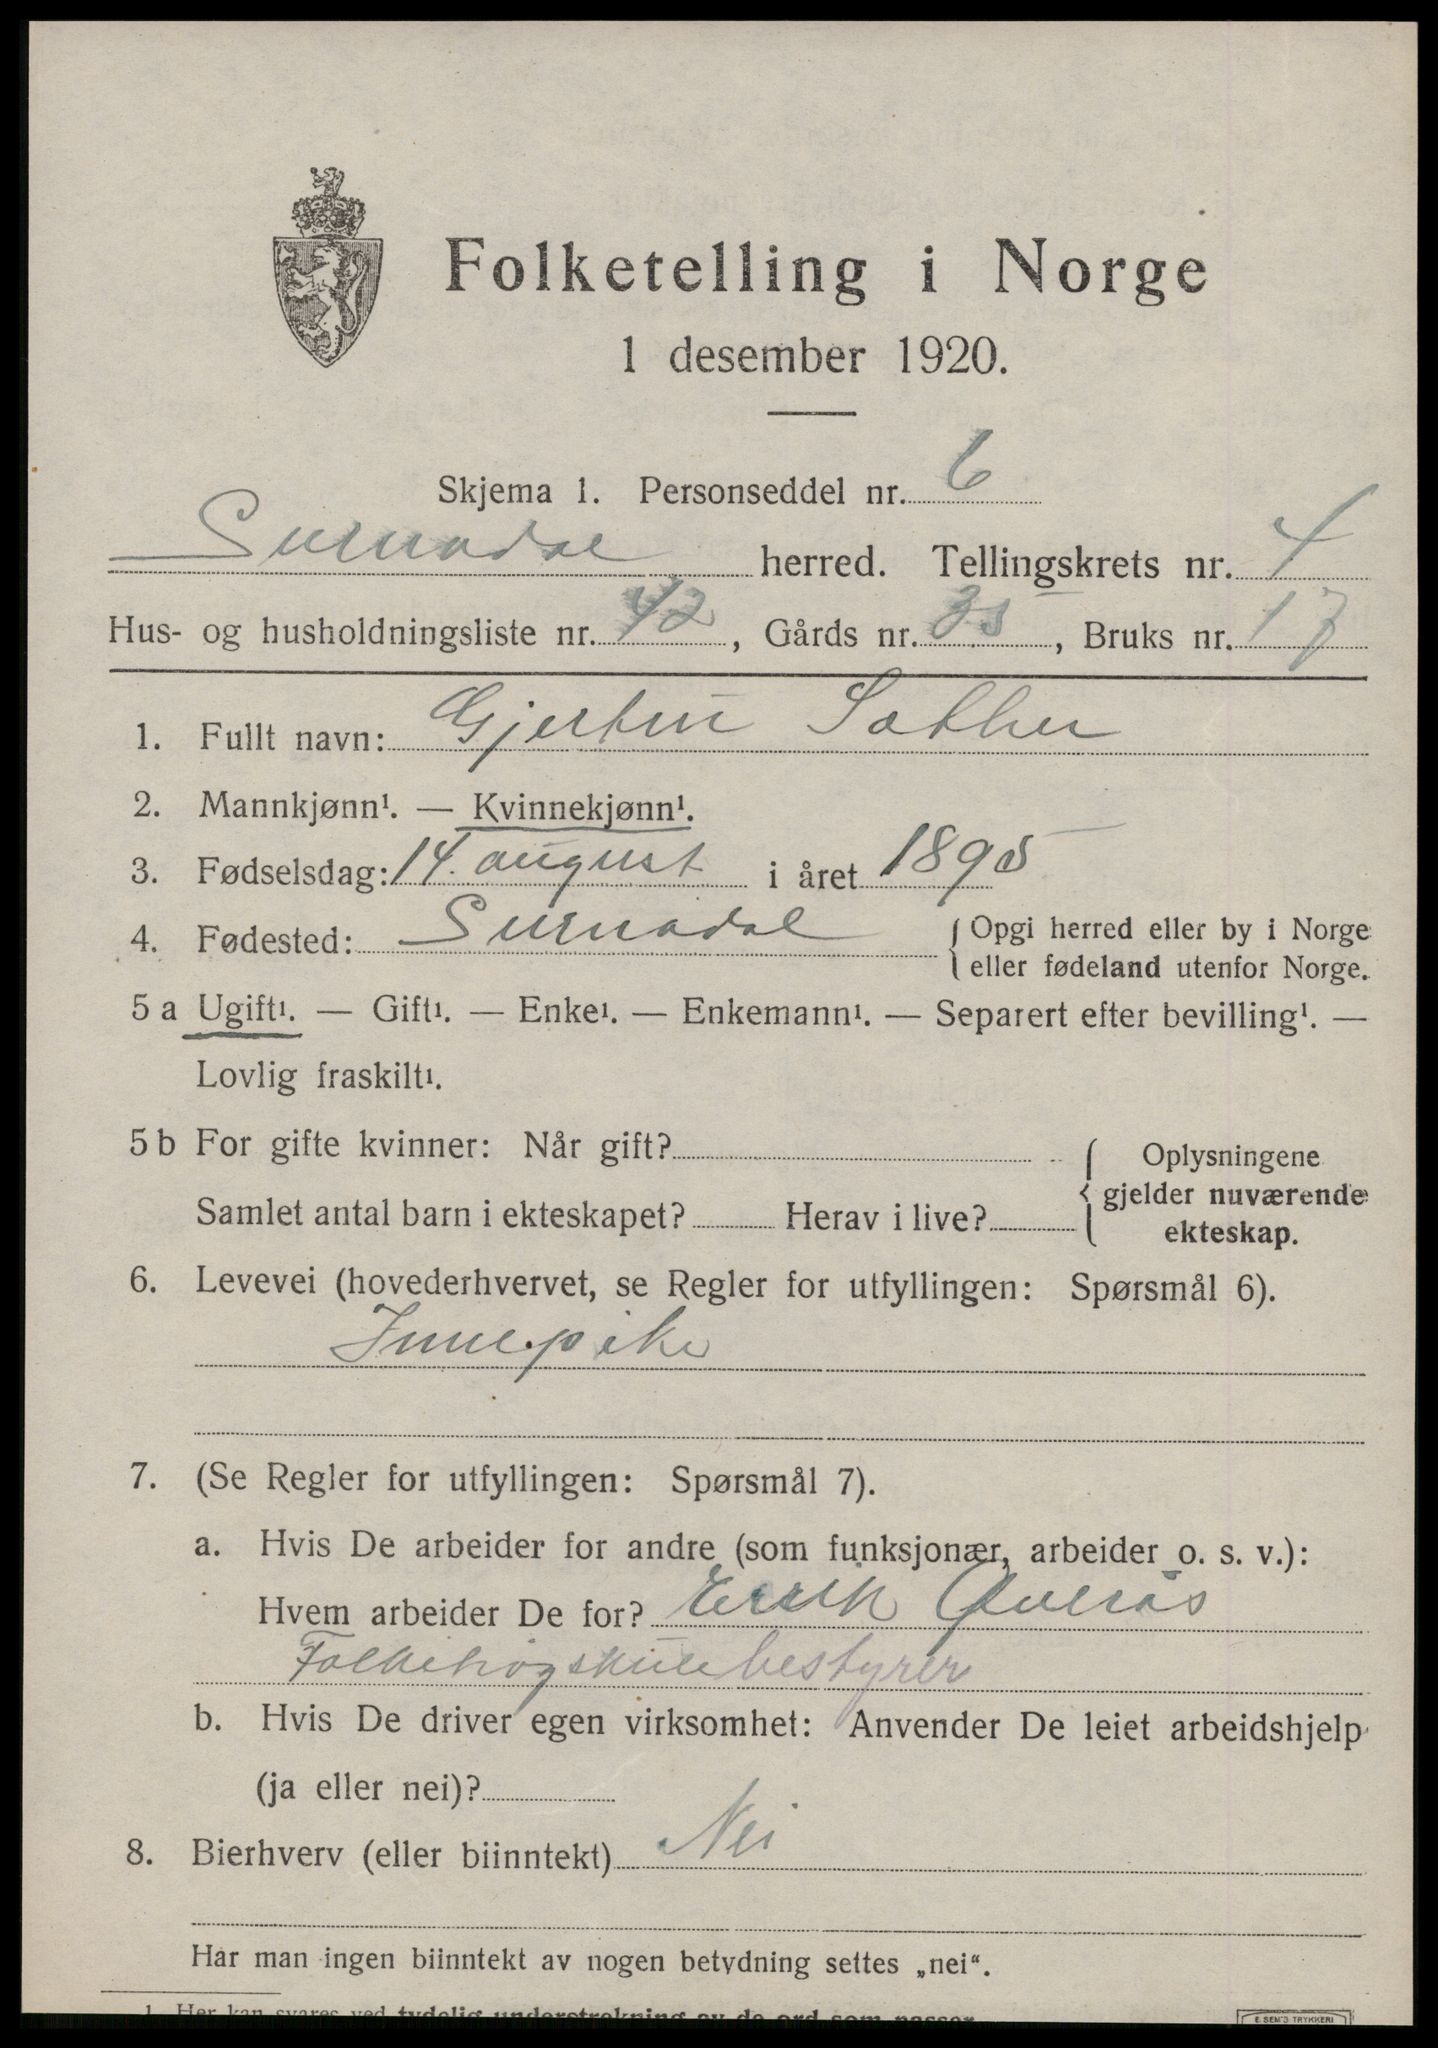 Folketelling i Norge
1 desember 1920.
Skjema 1. Personseddel nr. 6
Surnadal herred. Tellingskrets nr. 4
Hus- og husholdningsliste nr. 42, Gårds nr. 35, Bruks nr. 17
1. Fullt navn: Gjertine Sæther
2. Mannkjønn¹. — Kvinnekjønn¹.
3. Fødselsdag: 14. august i året 1895
4. Fødested: Surnadal { Opgi herred eller by i Norge
eller fødeland utenfor Norge.
5 a Ugift¹. — Gift¹. — Enke¹. — Enkemann¹. — Separert efter bevilling¹. —
Lovlig fraskilt¹.
5 b For gifte kvinner: Når gift? { Oplysningene
gjelder nuværende
ekteskap.
Samlet antal barn i ekteskapet? Herav i live?
6. Levevei (hovederhvervet, se Regler for utfyllingen: Spørsmål 6).
Innepike
7. (Se Regler for utfyllingen: Spørsmål 7).
a. Hvis De arbeider for andre (som funksjonær, arbeider o. s. v.):
Hvem arbeider De for? Erik
Folkehøgskulebestyrer
b. Hvis De driver egen virksomhet: Anvender De leiet arbeidshjelp
(ja eller nei)?
8. Bierhverv (eller biinntekt) Nei
Har man ingen biinntekt av nogen betydning settes „nei“.
1 Her kan svares ved tydelig understrekning av de ord som passer.
E. SEM'S TRYKKERI